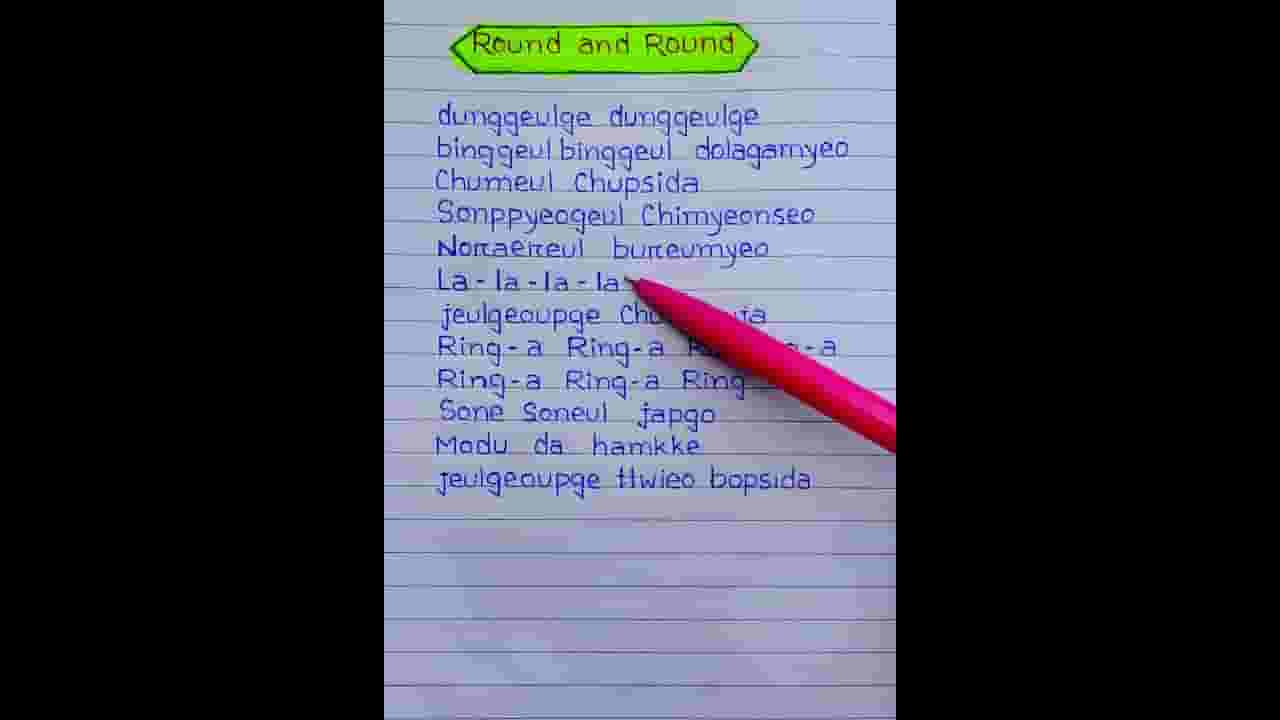 Round and Round
dunggeulge dunggeulge
binggeul binggeul dolagamyeo
Chumeul Chupsida
Sonppyeogeul Chimyeonseo
Noraereul bureumyeo
La - la - la - la
jeulgeoupge
Ring-a Ring-a
Ring-a Ring-a Ring
Sone Soneul japgo
Modu da hamkke
jeulgeoupge ttwieo bopsida